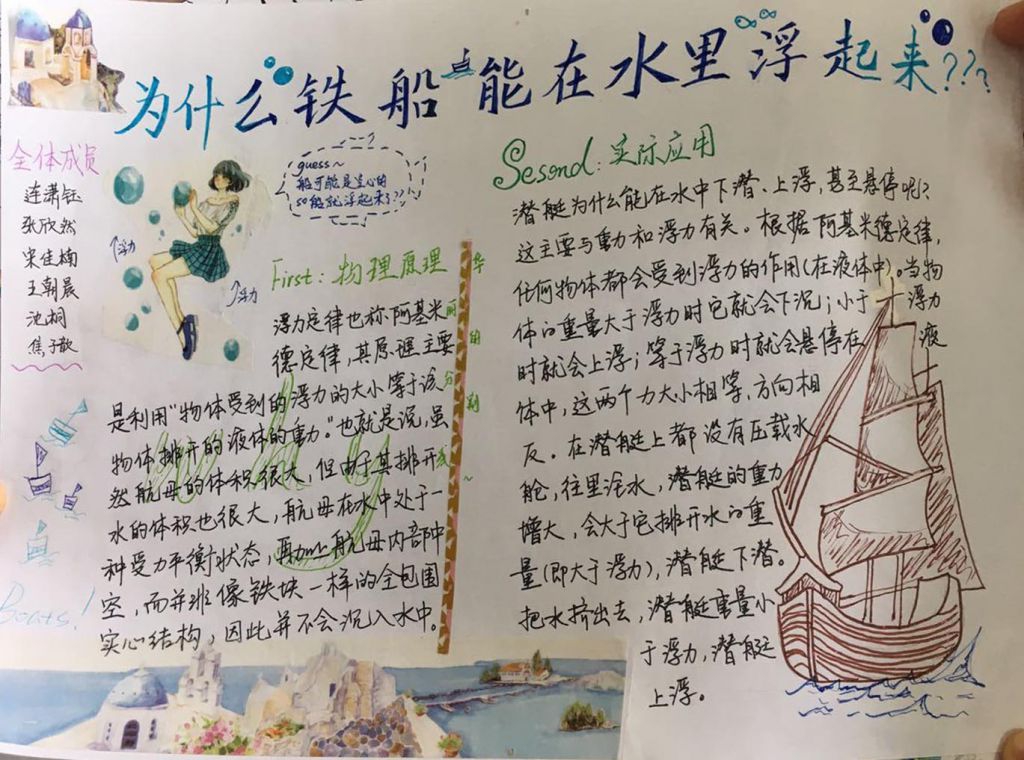 为什么铁船能在水里浮起来???
全体成员
连潇钰
张欣然
宋佳楠
王朝晨
沈桐
焦子歆
guess~
船可能是空心的
so能就浮起来了??
↑浮力
↑浮力
First: 物理原理
浮力定律也称阿基米
德定律，其原理主要
是利用“物体受到的浮力的大小等于该
物体排开的液体的重力。”也就是说，虽
然航母的体积很大，但由于其排开
水的体积也很大，航母在水中处于一
种受力平衡状态，再加上航母内部中
空，而并非像铁块一样的全包围
实心结构，因此并不会沉入水中。
华
丽
的
分
割
线
~
Sesond: 实际应用
潜艇为什么能在水中下潜、上浮，甚至悬停呢?
这主要与重力和浮力有关。根据阿基米德定律，
任何物体都会受到浮力的作用(在液体中)。当物
体的重量大于浮力时它就会下沉；小于浮力
时就会上浮；等于浮力时就会悬停在液
体中，这两个力大小相等，方向相
反。在潜艇上都设有压载水
舱，往里注水，潜艇的重力
增大，会大于它排开水的重
量(即大于浮力)，潜艇下潜。
把水挤出去，潜艇重量小
于浮力，潜艇
上浮。
Boats!